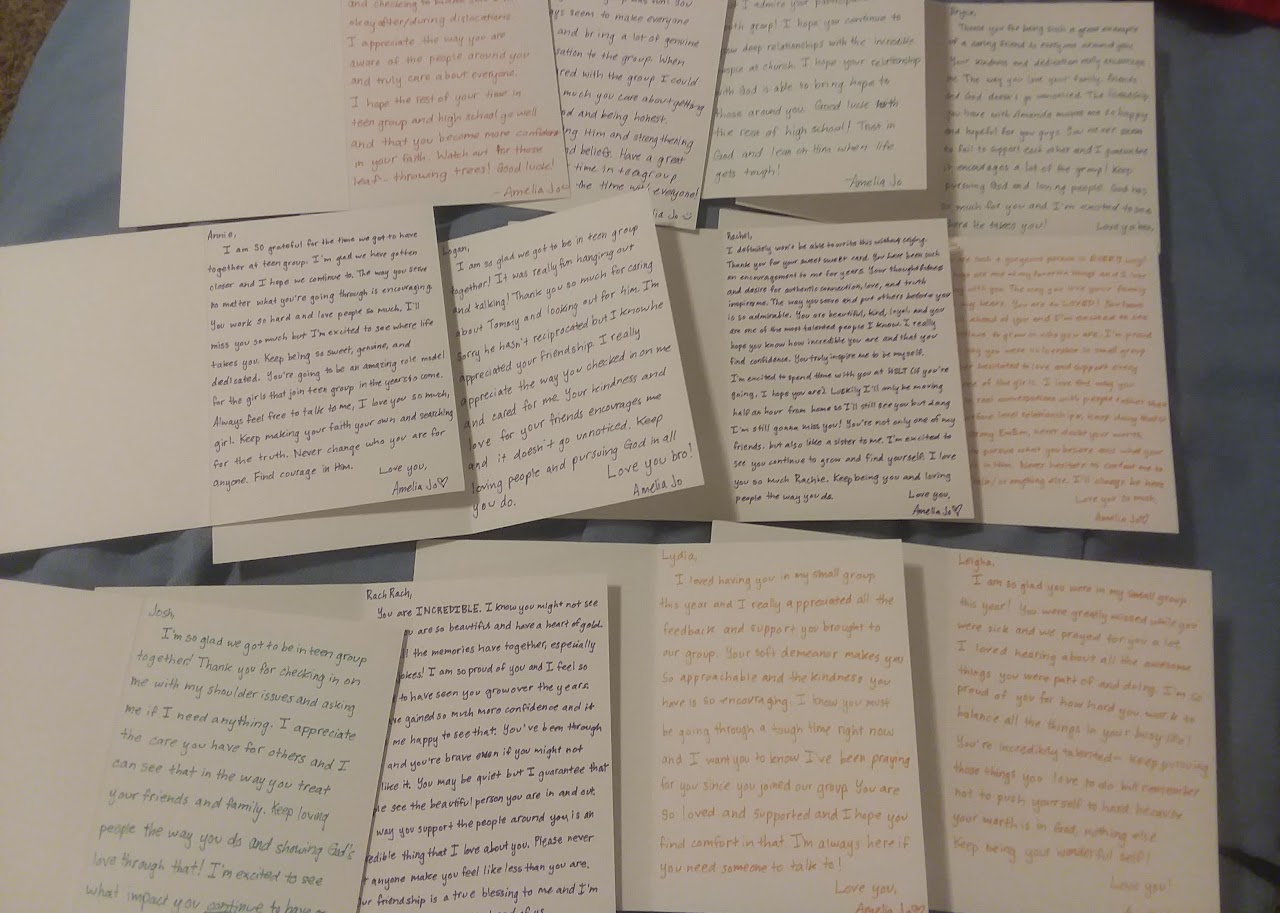 and checking to
okay after/during dislocations.
I appreciate the way you are
aware of the people around you
and truly care about everyone.
I hope the rest of your time in
teen group and high school go well
and that you become more confident
in your faith. Watch out for those
leaf-throwing trees! Good luck!
-Amelia Jo
was fun! You
seem to make everyone
and bring a lot of genuine
to the group. When
red with the group I could
much you care about getting
and being honest.
Him and strengthening
d beliefs. Have a great
time in teen group
everyone!
lia Jo
I admire your
group! I hope you continue to
deep relationships with the incredible
people at church. I hope your relationship
with God is able to bring hope to
those around you. Good luck with
the rest of high school! Trust in
God and lean on Him when life
gets tough!
-Amelia Jo
Thank you for being such a great example
of a caring friend to everyone around you.
Your kindness and dedication really encourage
me. The way you love your family, friends
and God doesn't go unnoticed. The friendship
you have with Amanda makes me so happy
and hopeful for you guys. You never seem
to fail to support each other and I
it encourages a lot of the group! Keep
pursuing God and loving people. God has
so much for you and I'm excited to see
where He takes you!
Annie,
I am SO grateful for the time we got to have
together at teen group. I'm glad we have gotten
closer and I hope we continue to. The way you serve
no matter what you're going through is encouraging.
You work so hard and love people so much, I'll
miss you so much but I'm excited to see where life
takes you. Keep being so sweet, genuine, and
dedicated. You're going to be an amazing role model
for the girls that join teen group in the years to come.
Always feel free to talk to me, I love you so much,
girl. Keep making your faith your own and searching
for the truth. Never change who you are for
anyone. Find courage in Him.
Love you,
Amelia Jo♡
Logan,
I am so glad we got to be in teen group
together! It was really fun hanging out
and talking! Thank you so much for caring
about Tommy and looking out for him. I'm
sorry he hasn't reciprocated but I know he
appreciated your friendship. I really
appreciate the way you checked in on me
and cared for me. Your kindness and
love for your friends encourages me
and it doesn't go unnoticed. Keep
loving people and pursuing God in all
you do.
Love you bro!
Amelia Jo
Rachel,
I definitely won't be able to write this without crying.
Thank you for your sweet card. You have been such
an encouragement to me for years. Your thoughtfulness
and desire for authentic connection, love, and truth
inspires me. The way you serve and put others before you
is so admirable. You are beautiful, kind, loyal, and you
are one of the most talented people I know. I really
hope you know how incredible you are and that you
find confidence. You truly inspire me to be myself.
I'm excited to spend time with you at (if you're
going, I hope you are). Luckily I'll only be moving
half an hour from home so I'll still see you but dang
I'm still gonna miss you! You're not only one of my
friends, but also like a sister to me. I'm excited to
see you continue to grow and find yourself. I love
you so much Rachie. Keep being you and loving
people the way you do.
Love you,
Amelia Jo♡
such a gorgeous person in EVERY way!
with you. The way you love your family
ahead of you and I'm excited to see
to grow in who you are. I'm proud
to love and support every
one of the girls. I love the way you
real conversations with people
never doubt your worth,
in Him. Never hesitate to
or anything else. I'll always be here
Love you so much,
Amelia Jo♡
Josh,
I'm so glad we got to be in teen group
together! Thank you for checking in on
me with my shoulder issues and asking
me if I need anything. I appreciate
the care you have for others and I
can see that in the way you treat
your friends and family. Keep loving
people the way you do and showing God's
love through that! I'm excited to see
what impact you continue to have
Rach Rach,
You are INCREDIBLE. I know you might not see
you are so beautiful and have a heart of gold.
the memories have together, especially
jokes! I am so proud of you and I feel so
to have seen you grow over the years.
gained so much more confidence and it
me happy to see that. You've been through
and you're brave even if you might not
like it. You may be quiet but I guarantee that
see the beautiful person you are in and out.
way you support the people around you, is an
edible thing that I love about you. Please never
anyone make you feel like less than you are.
ur friendship is a true blessing to me and I'm
of us
Lydia,
I loved having you in my small group
this year and I really appreciated all the
feedback and support you brought to
our group. Your soft demeanor makes you
so approachable and the kindness you
have is so encouraging. I know you must
be going through a tough time right now
and I want you to know I've been praying
for you since you joined our group. You are
so loved and supported and I hope you
find comfort in that. I'm always here if
you need someone to talk to!
Love you,
Amelia Jo♡
Leigha,
I am so glad you were in my small group
this year! You were greatly missed while you
were sick and we prayed for you a lot.
I loved hearing about all the awesome
things you were part of and doing. I'm so
proud of you for how hard you work to
balance all the things in your busy life!
You're incredibly talented- keep pursuing
those things you love to do but remember
not to push yourself to hard because
your worth is in God, nothing else.
Keep being your wonderful self!
Love you!
Amelia Jo